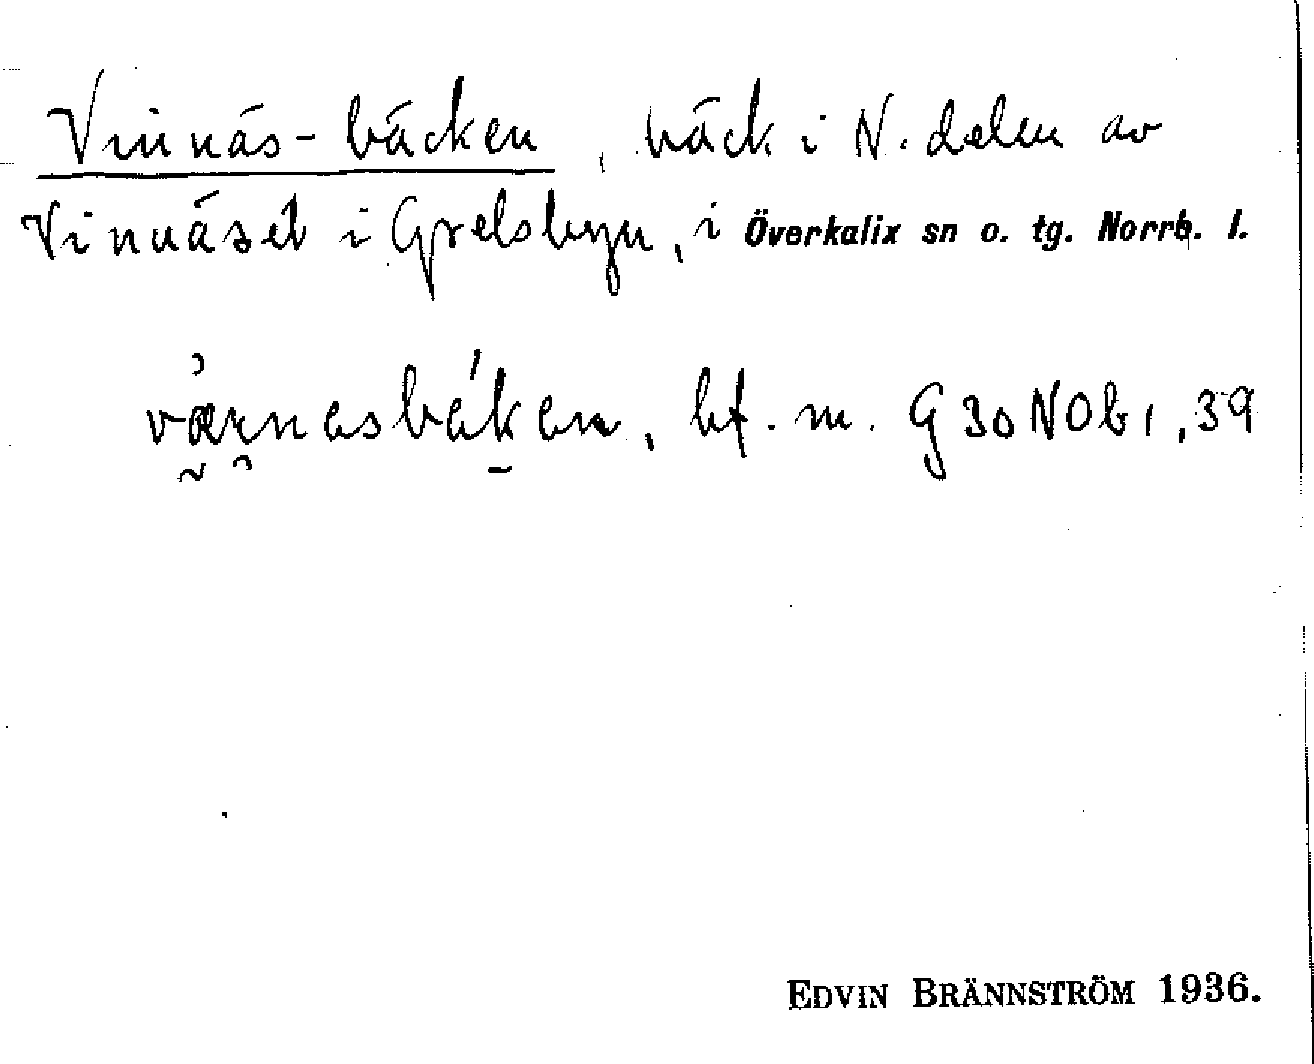 Vinnäs-bäcken, bäck i N. delen av
Vinnäset i Grelsbyn, i Överkalix sn o. tg. Norrb. l.
bf. m. G 30 NOb 1, 39
EDVIN BRÄNNSTRÖM 1936.